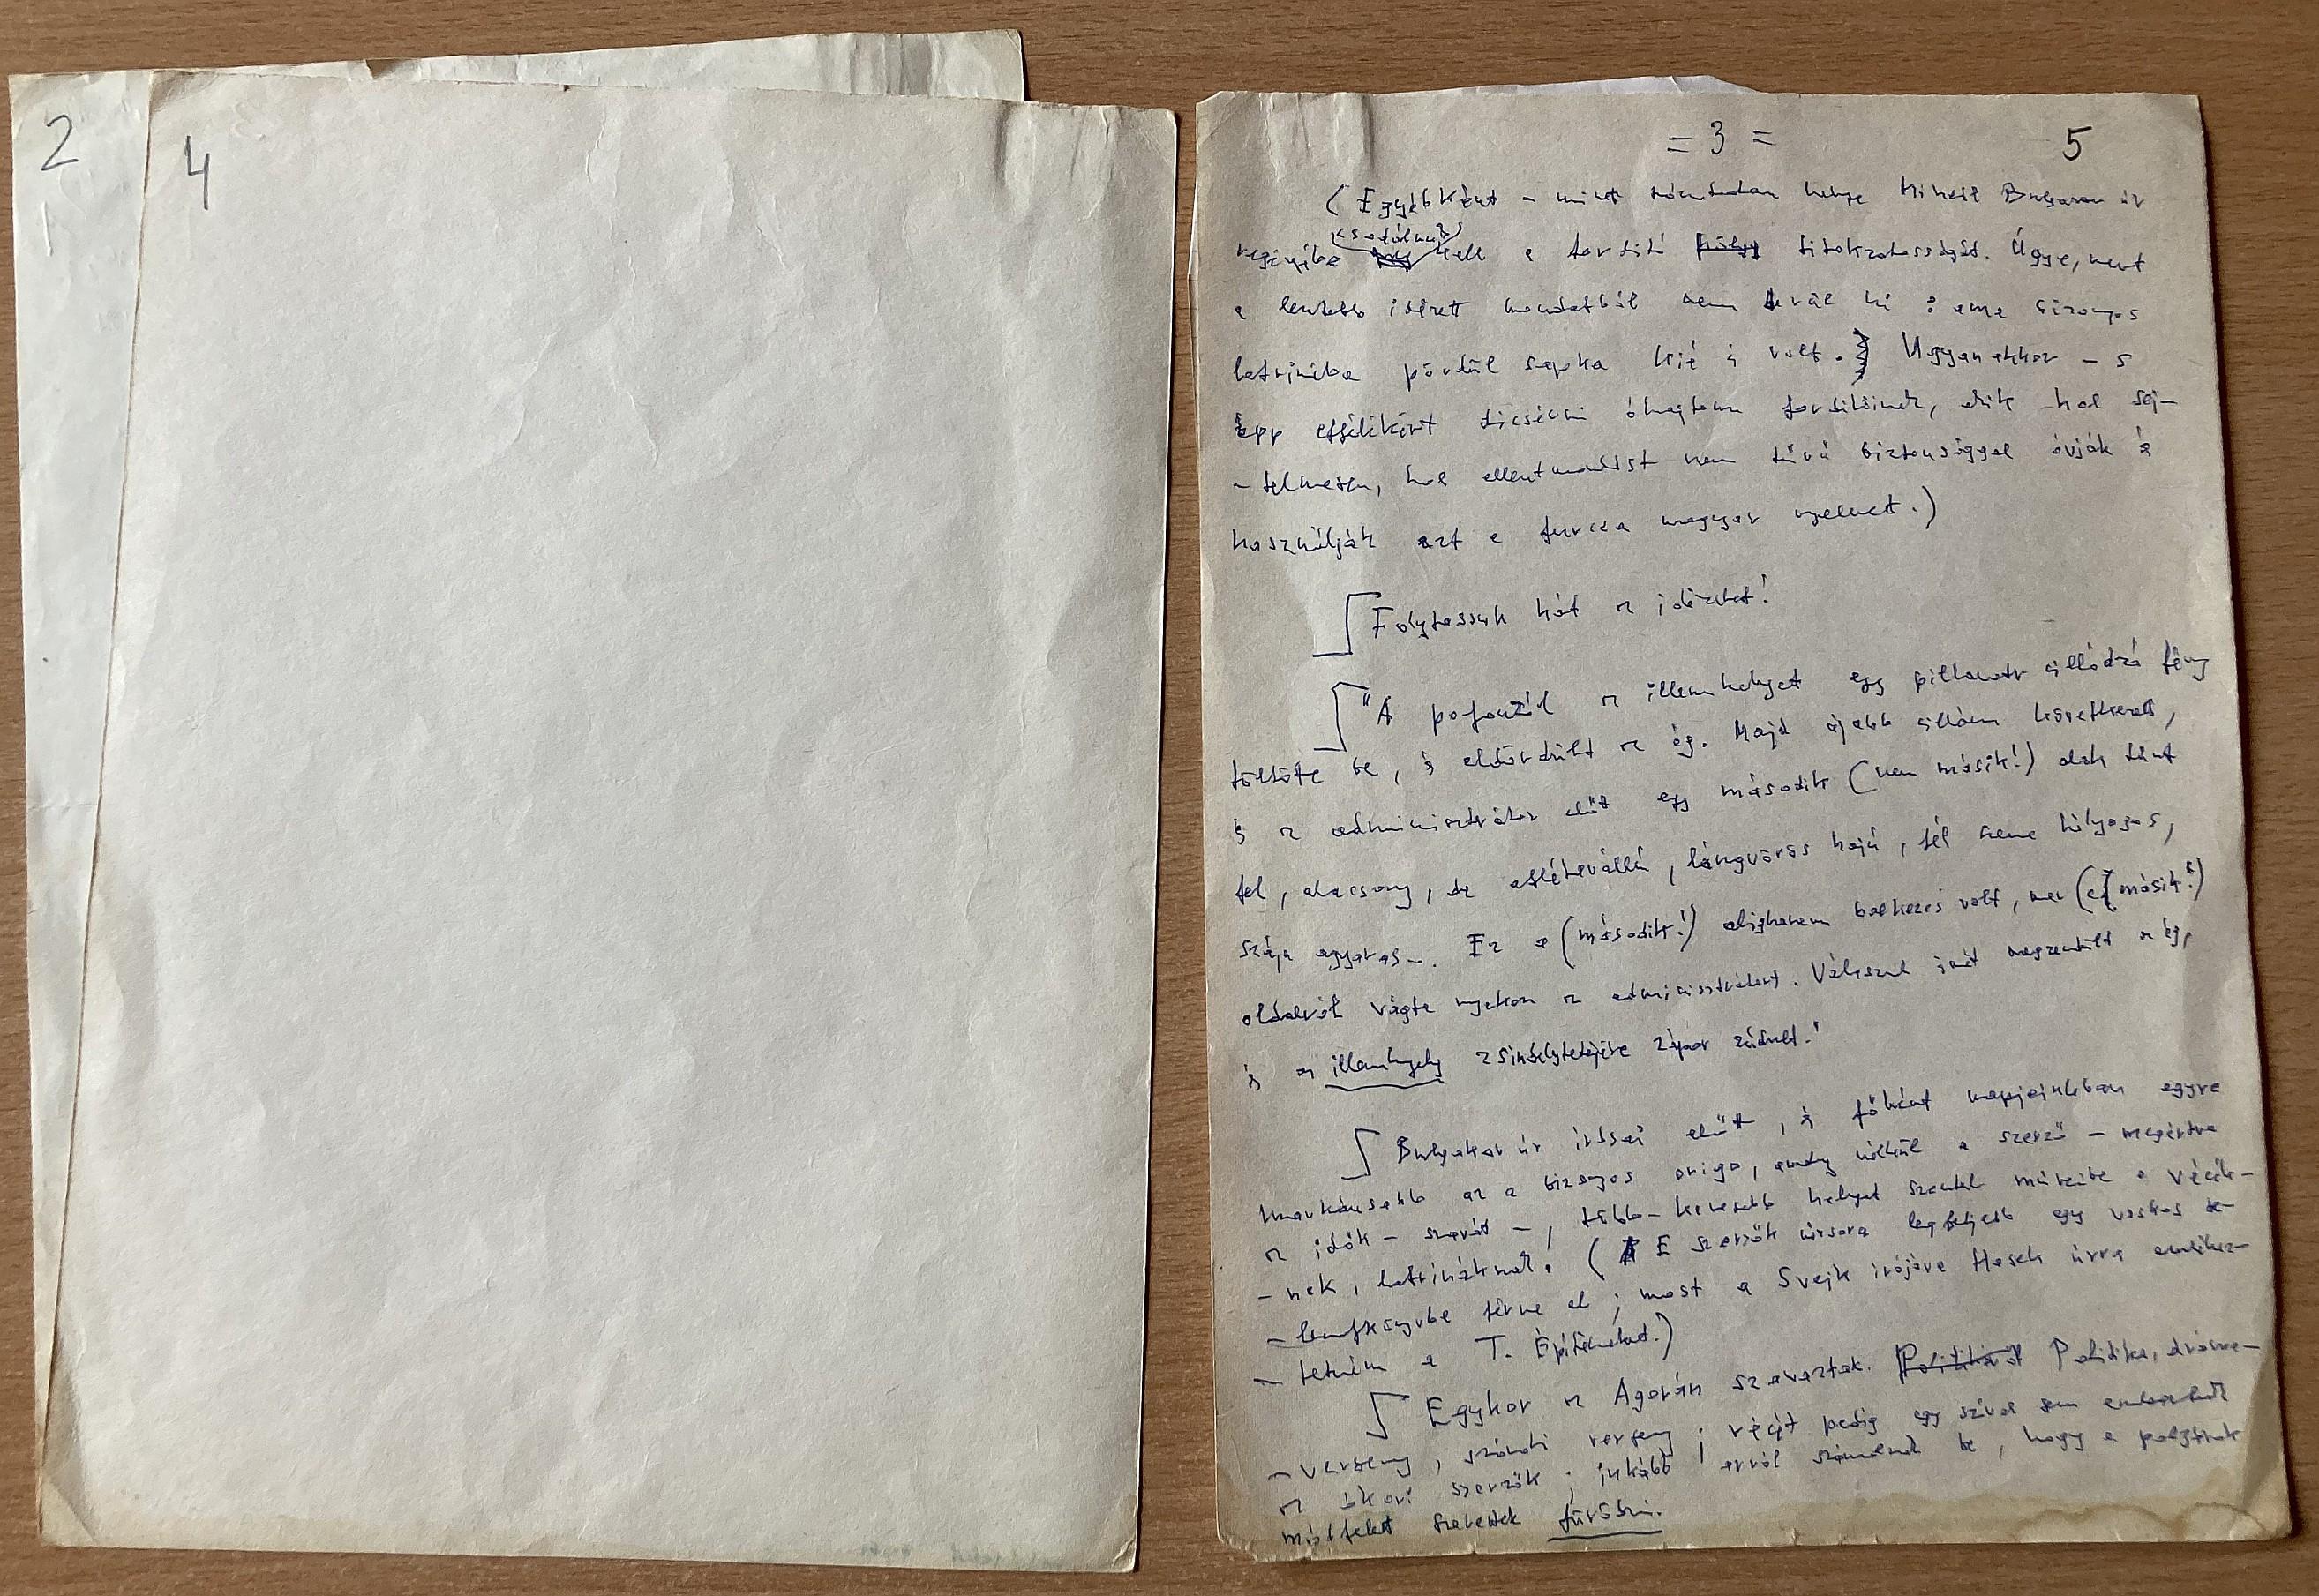 2
4
= 3 =
5
(Egyébként – mint mondottam Mihail Bulgakov úr
csodálni
regényébe kell a fordító titokzatosságát. Ugye, mert
a lentebb idézett mondatból nem vál ki : ama bizonyos
latrinába pördül sapka kié is volt. Ugyanakkor – s
épp effélékért dicsérni óhajtom fordítóinkat, akik hol sej-
-telmesen, hol ellentmondást nem tűrő biztonsággal óvják és
használják ezt a furcsa magyar nyelvet.)
Folytassuk hát az idézetet!
"A pofontól az illemhelyet egy pillanatra villódzó fény
töltötte be, és eldördült az ég. Majd újabb villám következett,
és az adminisztrátor előtt egy második (nem másik!) alak tűnt
fel, alacsony, de atlétavállú, lángvörös hajú, fél szeme hályogos,
szája agyaras –. Ez a (második!) alighanem balkezes volt, mer (ez másik!)
oldalról vágta nyakon az adminisztrátort. Válaszul ismét megzendült az ég,
és az illemhely zsindelytetejére zápor zúdult."
Bulgakov úr írásai előtt, és főként napjainkban egyre
markánsabb az a bizonyos origo, amely nélkül a szerző – megértve
az idők – szavát –, több-kevesebb helyet szentel műveibe a vécék-
-nek, latrináknak. (E szerzők névsora legfeljebb egy vaskos te-
-lefonkönyvbe férne el; most a Svejk írójára Hasek úrra emlékez-
-tetném a T. Építőmérnököt.)
Egykor az Agorán szavaztak. Politika, dráma-
-verseny, szónoki verseny; vécét pedig egy szóval sem emlegettek
az ókori szerzők; inkább arról számolnak be, hogy a polgárok
mióta szerettek fürödni.